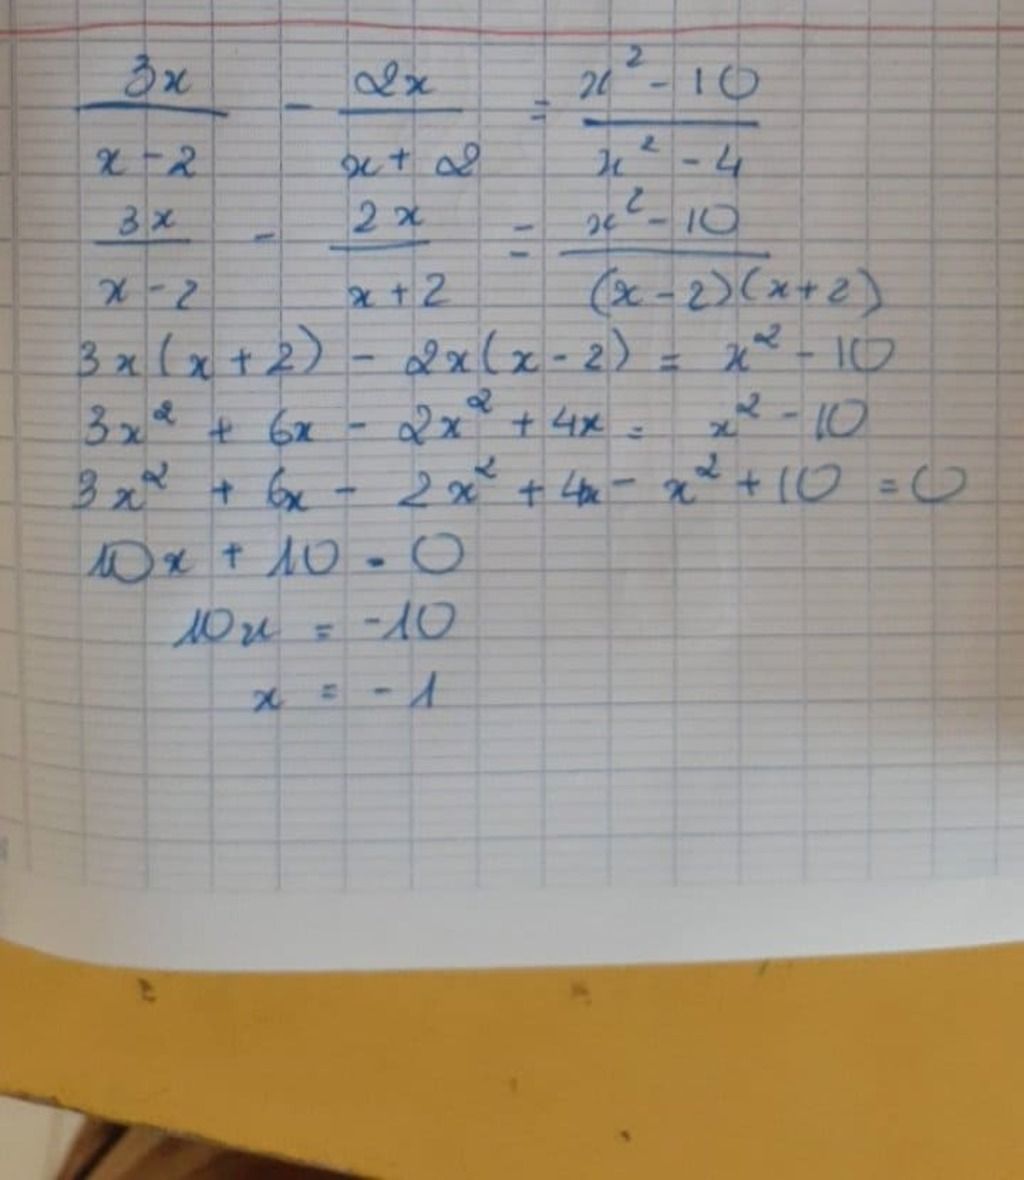 3x/(x-2) - 2x/(x+2) = (x²-10)/(x²-4)
3x/(x-2) - 2x/(x+2) = (x²-10)/((x-2)(x+2))
3x(x+2) - 2x(x-2) = x²-10
3x² + 6x - 2x² + 4x = x²-10
3x² + 6x - 2x² + 4x - x² + 10 = 0
10x + 10 = 0
10x = -10
x = -1